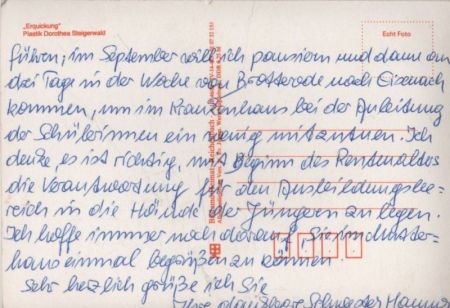 „Erquickung"
Plastik Dorothea Steigerwald
Echt Foto
führen; im September will ich pausieren und dann an
drei Tage in der Woche von Brotterode nach Eisenach
kommen, um im Krankenhaus bei der Anleitung
der Schülerinnen ein wenig mitzutun. Ich
denke, es ist richtig, mit Beginn des Rentenalters
die Verantwortung für den Ausbildungsbe-
reich in die Hände der Jüngeren zu legen.
Ich hoffe immer noch darauf, Sie im Mutter-
haus einmal begrüßen zu können
Sehr herzlich grüße ich Sie
Ihre dankbare Schwester